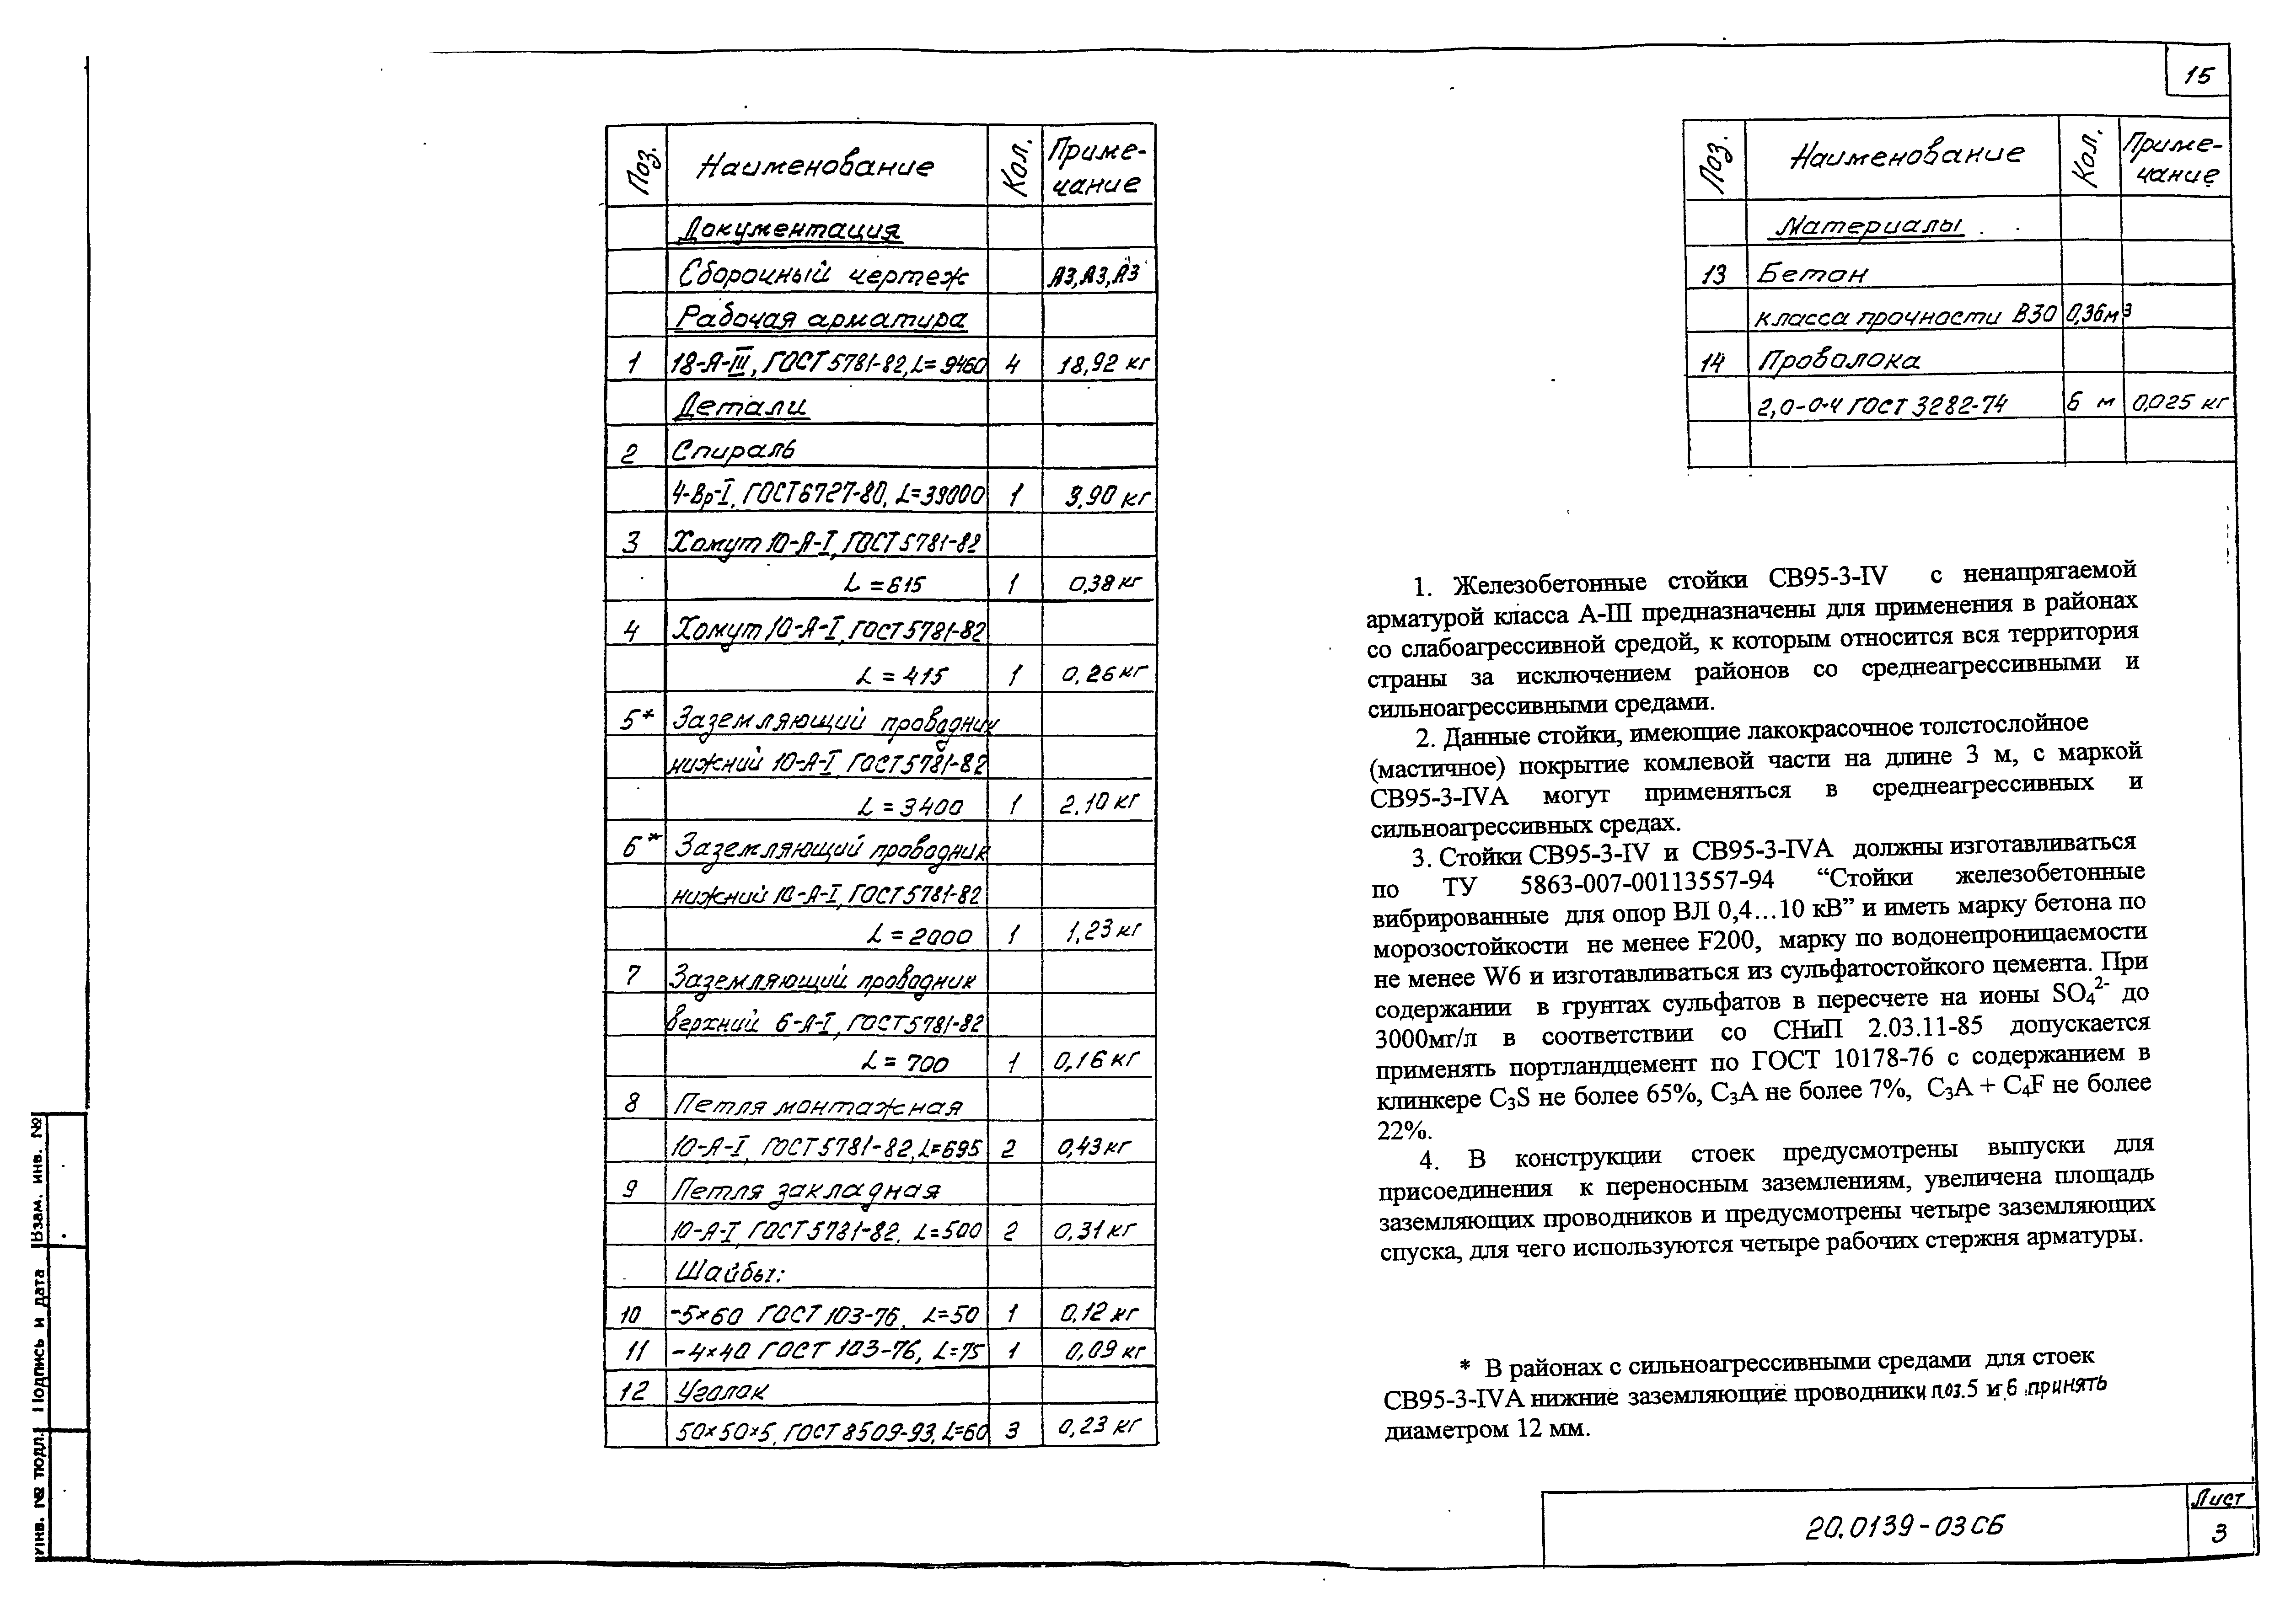 15
Поз. Наименование Кол. Приме-
чание
Документация
Сборочный чертеж А3,А3,А3
Рабочая арматура
1 18-А-III, ГОСТ 5781-82, L=9460 4 18,92 кг
Детали
2 Спираль
4-Вр-I, ГОСТ 6727-80, L=39000 1 3,90 кг
3 Хомут 10-А-I, ГОСТ 5781-82
L = 615 1 0,38 кг
4 Хомут 10-А-I, ГОСТ 5781-82
L = 415 1 0,26 кг
5* Заземляющий проводник
нижний 10-А-I, ГОСТ 5781-82
L = 3400 1 2,10 кг
6* Заземляющий проводник
нижний 10-А-I, ГОСТ 5781-82
L = 2000 1 1,23 кг
7 Заземляющий проводник
верхний 6-А-I, ГОСТ 5781-82
L = 700 1 0,16 кг
8 Петля монтажная
10-А-I, ГОСТ 5781-82, L=695 2 0,43 кг
9 Петля закладная
10-А-I, ГОСТ 5781-82, L=500 2 0,31 кг
Шайбы:
10 -5×60 ГОСТ 103-76, L=50 1 0,12 кг
11 -4×40 ГОСТ 103-76, L=75 1 0,09 кг
12 Уголок
50×50×5, ГОСТ 8509-93, L=60 3 0,23 кг
Поз. Наименование Кол. Приме-
чание
Материалы
13 Бетон
класса прочности В30 0,36м³
14 Проволока
2,0-0-Ч ГОСТ 3282-74 6 м 0,025 кг
1. Железобетонные стойки СВ95-3-IV с ненапрягаемой
арматурой класса А-III предназначены для применения в районах
со слабоагрессивной средой, к которым относится вся территория
страны за исключением районов со среднеагрессивными и
сильноагрессивными средами.
2. Данные стойки, имеющие лакокрасочное толстослойное
(мастичное) покрытие комлевой части на длине 3 м, с маркой
СВ95-3-IVА могут применяться в среднеагрессивных и
сильноагрессивных средах.
3. Стойки СВ95-3-IV и СВ95-3-IVА должны изготавливаться
по ТУ 5863-007-00113557-94 “Стойки железобетонные
вибрированные для опор ВЛ 0,4…10 кВ” и иметь марку бетона по
морозостойкости не менее F200, марку по водонепроницаемости
не менее W6 и изготавливаться из сульфатостойкого цемента. При
содержании в грунтах сульфатов в пересчете на ионы SO₄²⁻ до
3000мг/л в соответствии со СНиП 2.03.11-85 допускается
применять портландцемент по ГОСТ 10178-76 с содержанием в
клинкере C₃S не более 65%, C₃A не более 7%, C₃A + C₄F не более
22%.
4. В конструкции стоек предусмотрены выпуски для
присоединения к переносным заземлениям, увеличена площадь
заземляющих проводников и предусмотрены четыре заземляющих
спуска, для чего используются четыре рабочих стержня арматуры.
* В районах с сильноагрессивными средами для стоек
СВ95-3-IVА нижние заземляющие проводники поз.5 и 6 принять
диаметром 12 мм.
Взам. инв. №
Подпись и дата
Инв. № подл.
20.0139-03СБ
Лист
3